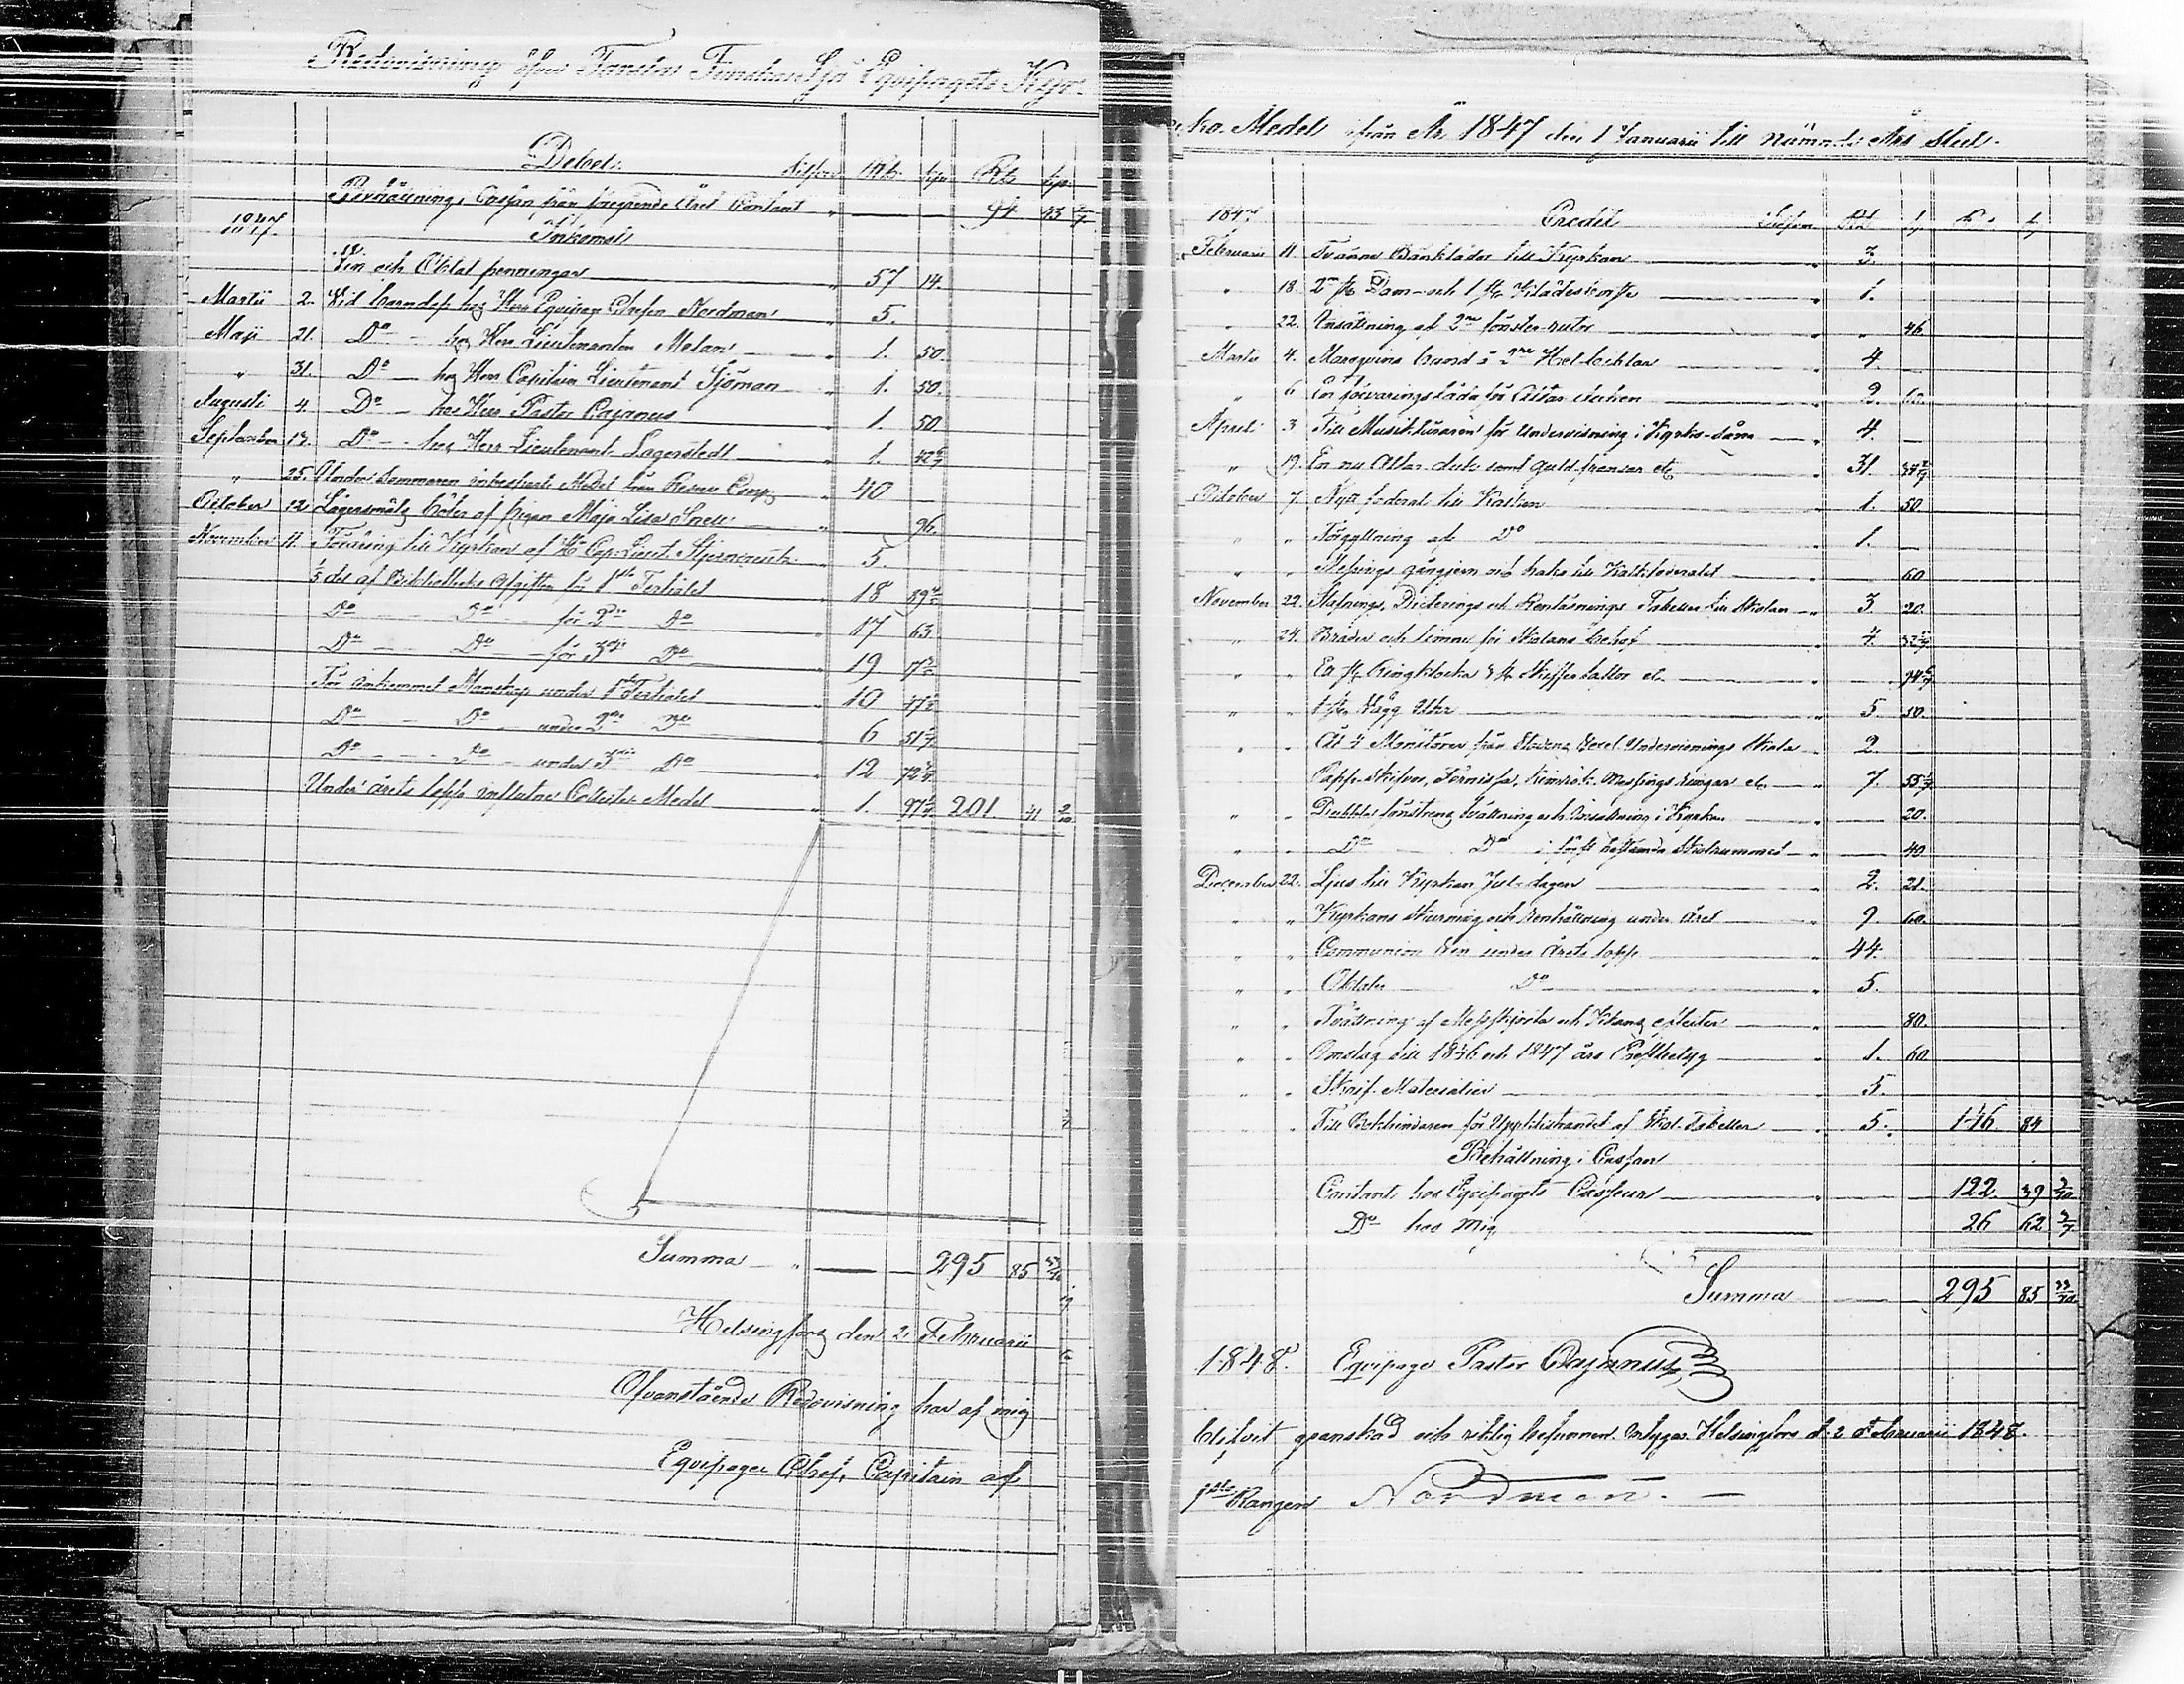 Redovisning öfver Första Finska Sjö Equipagets Kyr-
Debet. Rub. kop. Rub. kop.
Behållning i Cassan från föregående Året Contant 94 43
1847. Inkomst
Vin och Oblat penningar 57 14.
Martii 2. Vid barndop hos Herr Equipage Chefen Nordman 5.
Maji 21. Do hos Herr Lieutenanten Melan 1. 50.
" 31. Do hos Herr Capitain Lieutenant Sjöman 1. 50.
Augusti 4. Do hos Herr Pastor Cajanus 1. 50
September 13. Do hos Herr Lieutenant Lagerstedt 1. 42 6/7
" 25. Under Sommaren Medel från 40
October 12 Lägersmåls böter af pigan Maja Lisa Snell 96.
November 11. Föräring till Kyrkan af Hr Cap. Lieut. Stjerncreutz 5.
1/5 del af Bibliotheks afgiften för 1sta Tertialet 18 59
Do Do för 2dra Do 17 63
Do Do för 3dje Do 19 17
För ankommet Manskap under 1sta Tertialet 10 17
Do Do under 2dra Do 6 51
Do Do under 3dje Do 12 72
Under årets lopp influtne Collecter Medel 1. 97 201. 41
Summa 295 85
Helsingfors den 2 Februarii
Ofvanstående Redovisning har af mig
Equipage Chef, Capitain af
ko Medel ifrån År 1847 den 1 Januarii till nämnde Års slut.
1847 Credit
Februarii 11. Tvänne Bänklådor till Kyrkan 3.
" 18. 2ne st. Dam- och 1 st. Klädesborste 1.
" 22. Insättning af 2ne fönster-rutor " 46.
Martii 4. band i 2ne 4. —
" 6 En förvaringslåda för Altar duken 2.
Aprili 3 Till Musikläraren för Undervisning i Kyrko-sång 4. —
" 19. En ny Altar-duk samt guld-fransar etc 31. 34 2/7
October 7. Nytt foderal till Kalken 1. 50
" " Förgyllning af Do 1. —
" " Messings gångjern och hake till Kalkfoderalet 60
November 22. Stafnings, Dicterings och Renläsnings Tabeller till Skolan 3. 20.
" 24. Bräder och timmer för Skolans behof 4.
" " En st. Ringklocka st. Skiffertaflor etc
" " 1 st. Vägg Uhr 5. 50.
" " Åt 4 Monitörer från Undervisnings Skola 2.
Papp-skifvor, Fernissa, Kimrök, Messings ringar etc 7. 55
" " Dubbla fönstrens tvättning och Insättning i Kyrkan 20.
" " Do Do i Skolrummet 40
December 22. Ljus till Kyrkan Jul-dagen 2. 21.
" " Kyrkans skurning och renhållning under Året 9. 60.
" " Communion Vin under Årets lopp 44.
" " Oblater Do 5.
" " Tvättning af Messkjorta och 80.
" " Omslag till 1846 och 1847 års 1. 60
" " Skrif-Materialier 5.
" " Till Bokbindaren för Uppklistrandet af Skol-Tabeller 5. 146 84
Behållning i Cassan
Contant hos Equipagets Casseur 122 39
Do hos mig 26 62
Summa 295 85
1848. Equipage Pastor Cajanus
blifvit granskad och riktig befunnen intygar Helsingfors d. 2 Februarii 1848.
1sta Rangen Nordman.